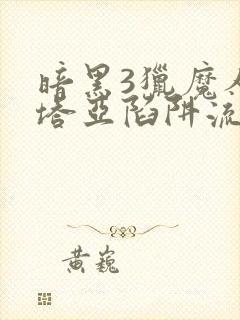 暗黑3獵魔人
塔亞陷阱流
黃巍